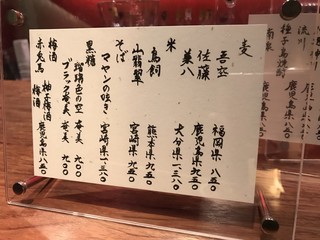 麦
吾空 福岡県 八五〇
佐藤 鹿児島県 九五〇
兼八 大分県 一三八〇
米
鳥飼 熊本県 九五〇
山翡翠 宮崎県 九五〇
そば
マヤンの呟き 宮崎県 一一五〇
黒糖
瑠璃色の空 奄美 九〇〇
ブラック奄美 奄美 九〇〇
梅酒
赤兎馬 柚子梅酒 鹿児島県 八五〇
梅酒
種子島焼酎
鹿児島県